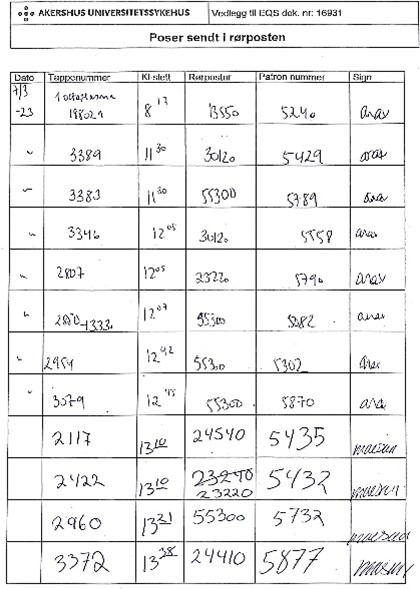 AKERSHUS UNIVERSITETSSYKEHUS Vedlegg til EQS dok. nr: 16931
Poser sendt i rørposten
Dato Tappenummer Kl-slett Rørpostnr Patron nummer Sign
7/3 -23 198021 8 13 13550 5240 arax
" 3389 11 30 30120 5429 arax
" 3383 11 30 55300 5789 arax
" 3346 12 05 30120 5558 arax
" 2807 12 05 23220 5790 arax
" 12 07 55300 5082 arax
" 2954 12 42 55300 5302 arax
" 3079 12 45 55300 5870 arax
2117 13 10 24540 5435
2422 13 10 23240 5432
23220
2960 13 21 55300 5732
3372 13 38 24410 5877